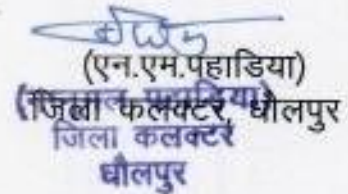 (एन.एम.पहाडिया)
जिला कलक्टर, धौलपुर
जिला कलक्टर
धौलपुर